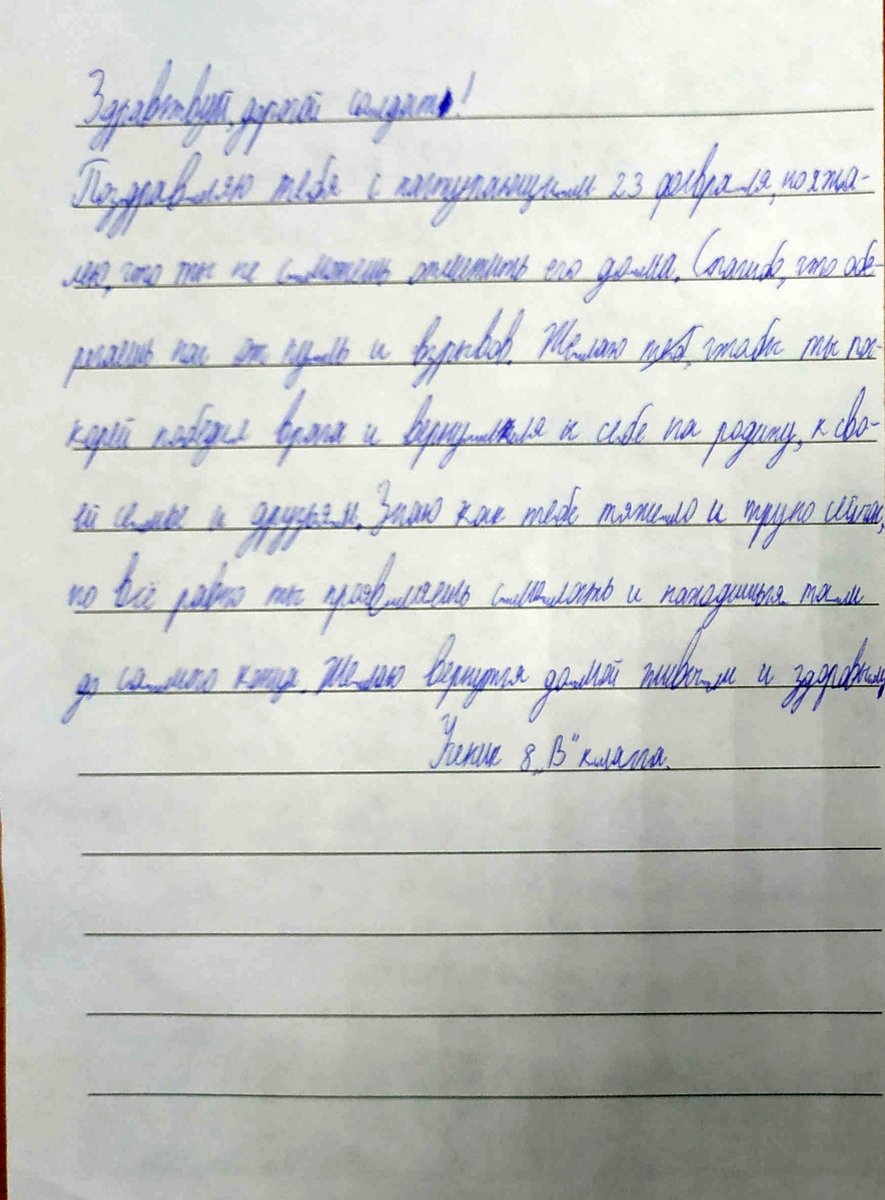 Здравствуй, дорогой солдат!
Поздравляю тебя с наступающим 23 февраля, сожа-
лею, что ты не сможешь отметить его дома. Спасибо, что обе-
регаешь нас от пуль и взрывов. Желаю тебе, чтобы ты пос-
корей победил врага и вернулся к себе на родину, к сво-
ей семье и друзьям. Знаю как тебе тяжело и трудно сейчас,
но всё равно ты проявляешь смелость и находишься там
до самого конца. Желаю вернутся домой живым и здоровым
Ученик 8 „В" класса.